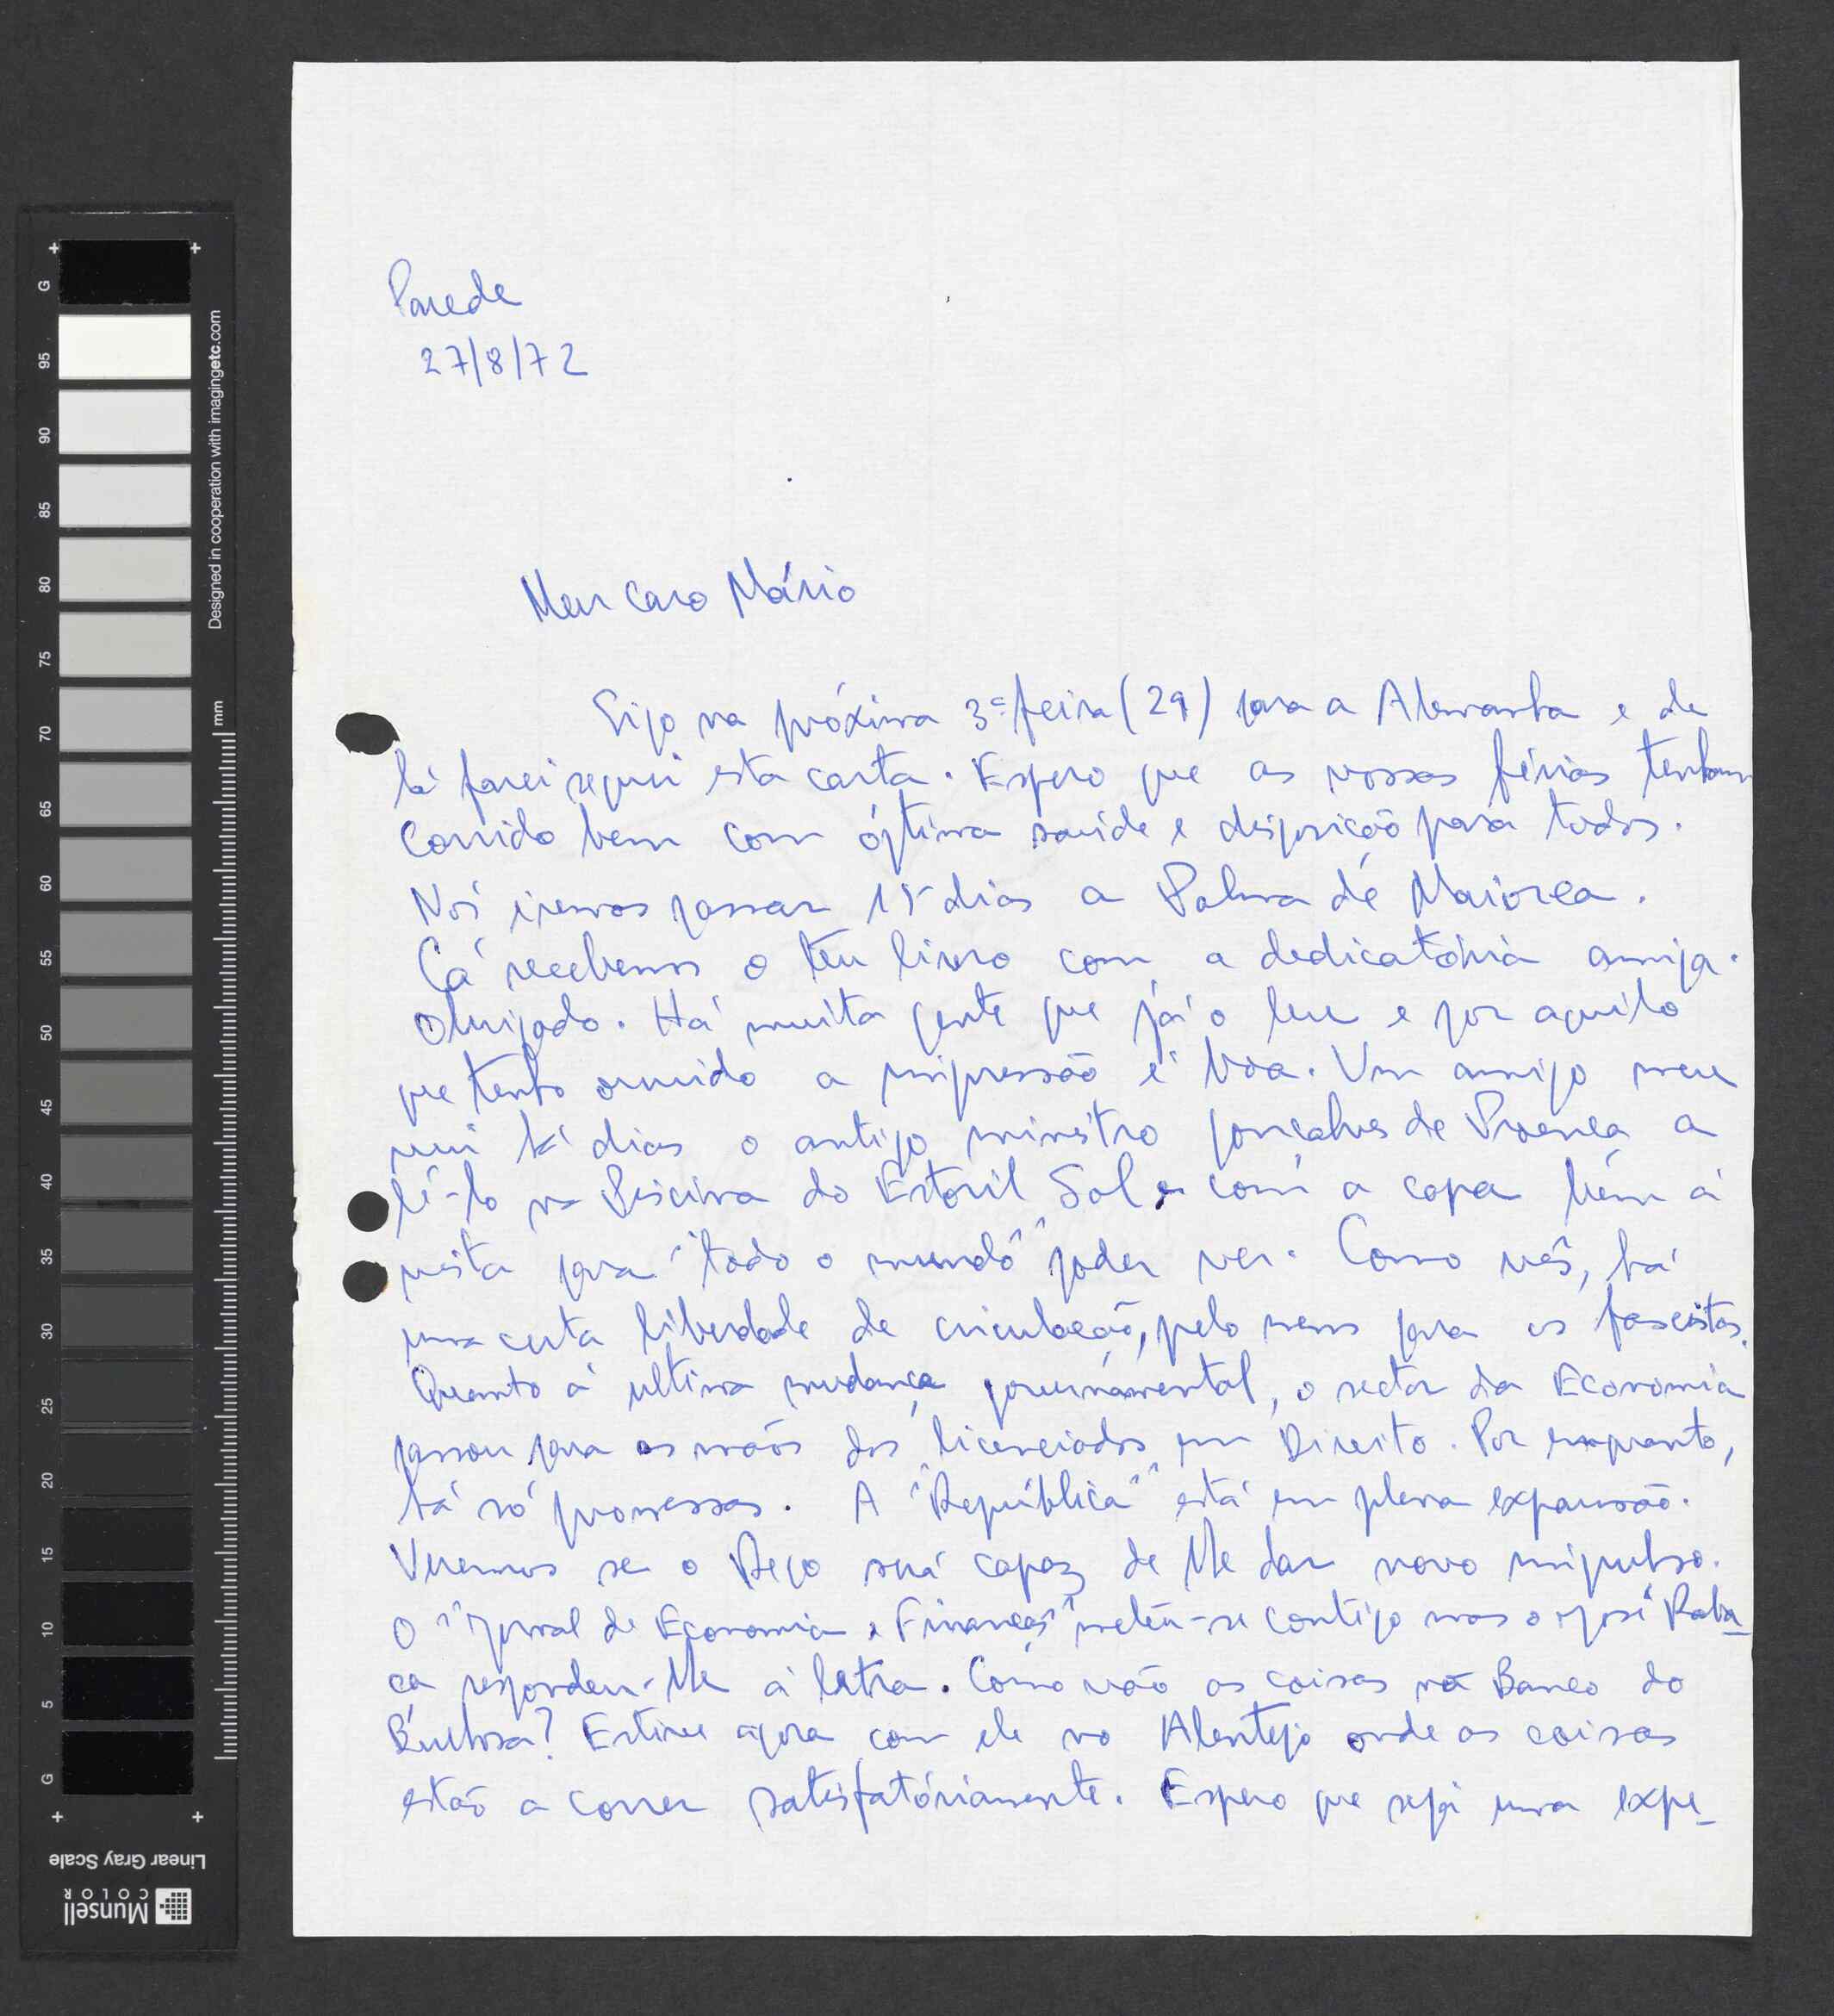 Parede
27/8/72
Meu Caro Mário
Sigo na próxima 3ª feira (29) para a Alemanha e de
lá farei seguir esta carta. Espero que as vossas férias tenham
corrido bem com óptima saúde e disposição para todos.
Nós iremos passar 15 dias a Palma de Maiorca.
Cá recebemos o teu livro com a dedicatória amiga.
Obrigado. Há muita gente que já o leu e por aquilo
que tenho ouvido a impressão é boa. Um amigo meu
viu há dias o antigo ministro Gonçalves de Proença a
lê-lo na Piscina do Estoril Sol e com a capa bem à
vista para "todo o mundo" poder ver. Como vês, há
uma certa liberdade de circulação, pelo menos para os fascistas.
Quanto à ultima mudança governamental, o sector da Economia
passou para as mãos dos licenciados em Direito. Por enquanto,
há só promessas. A "República" está em plena expansão.
Veremos se o Rego será capaz de lhe dar novo impulso.
O "Jornal de Economia e Finanças" meteu-se contigo mas o José Raba_
ça respondeu-lhe à letra. Como vão as coisas no Banco do
Bulhosa? Estive agora com ele no Alentejo onde as coisas
estão a correr satisfatóriamente. Espero que seja uma expe_
Designed in cooperation with imagingetc.com
mm
G 95 90 85 80 75 70 65 60 55 50 45 40 35 30 25 20 15 10 5 G
Linear Gray Scale
Munsell
COLOR